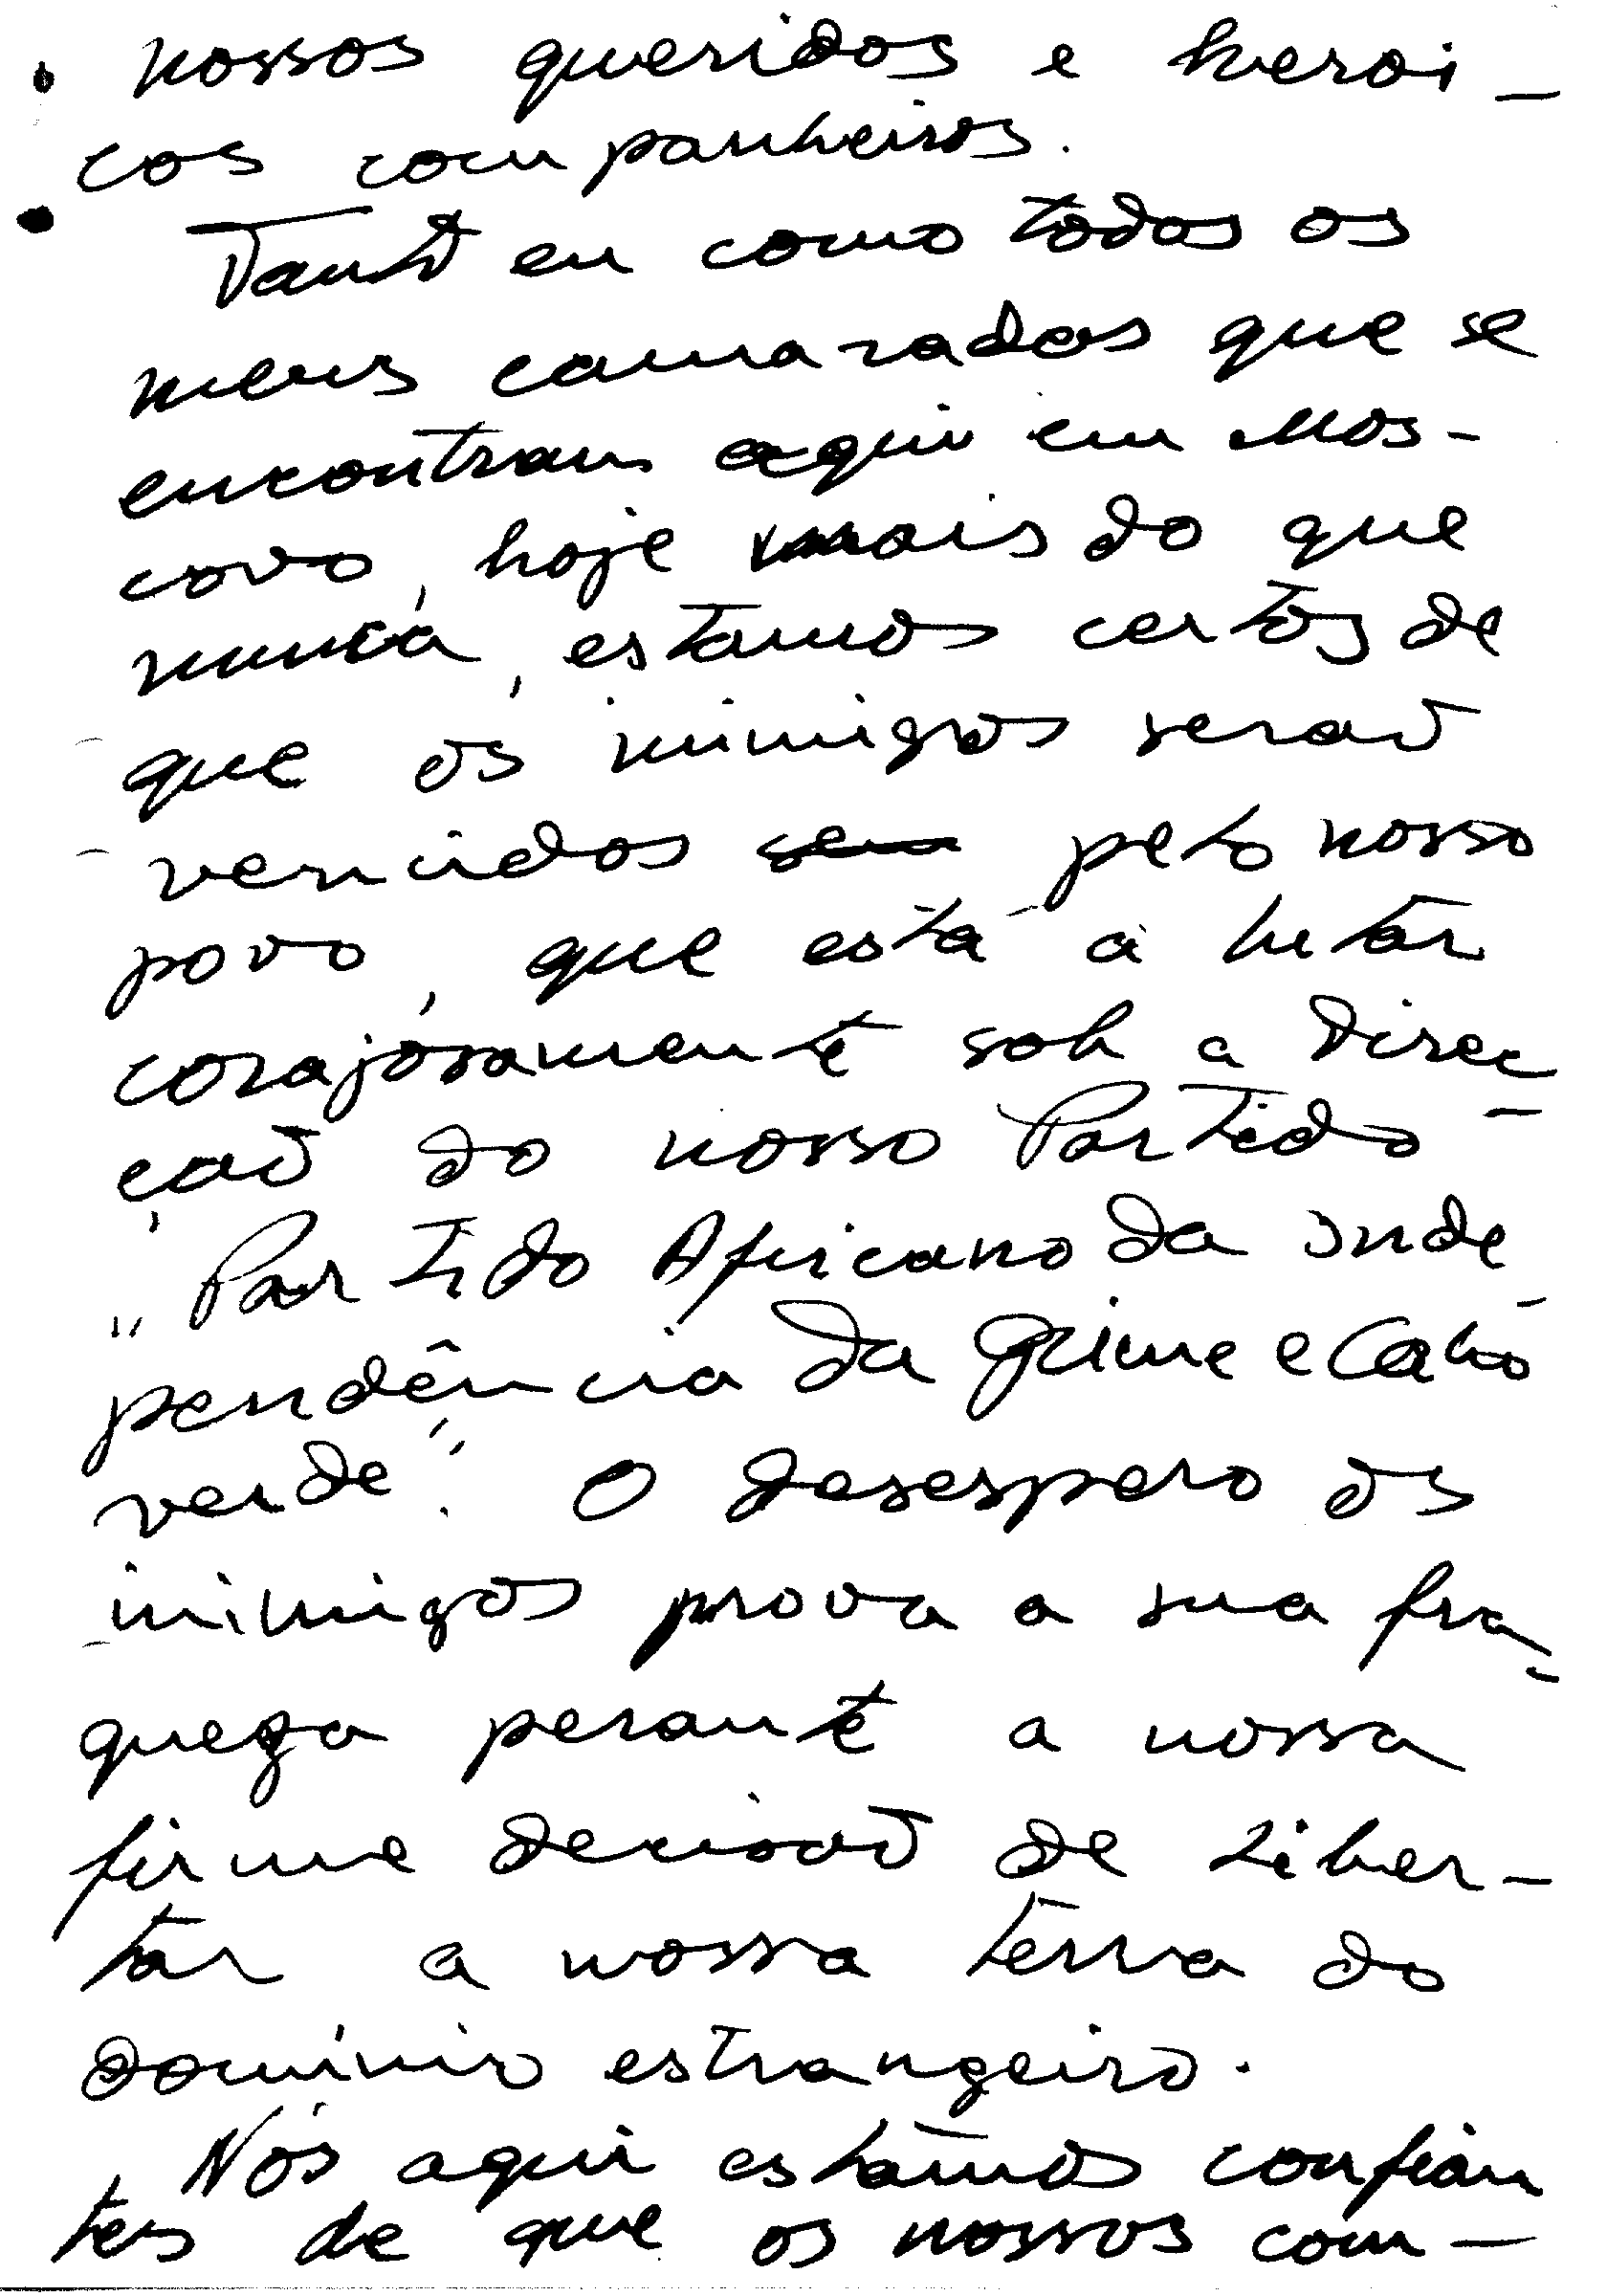 nossos queridos e heroi-
cos companheiros.
Tanto eu como todos os
meus camaradas que se
encontram aqui em Mos-
covo, hoje mais do que
nunca, estamos certos de
que os inimigos serão
vencidos pelo nosso
povo, que está a lutar
corajosamente sob a direc-
ção do nosso Partido
"Partido Africano da Inde-
pendência da Guiné e Cabo
verde". O desespero os
inimigos prova a sua fra-
queza perante a nossa
firme decisão de liber-
tar a nossa terra do
domínio estrangeiro.
Nós aqui estamos confian
tes de que os nossos com-